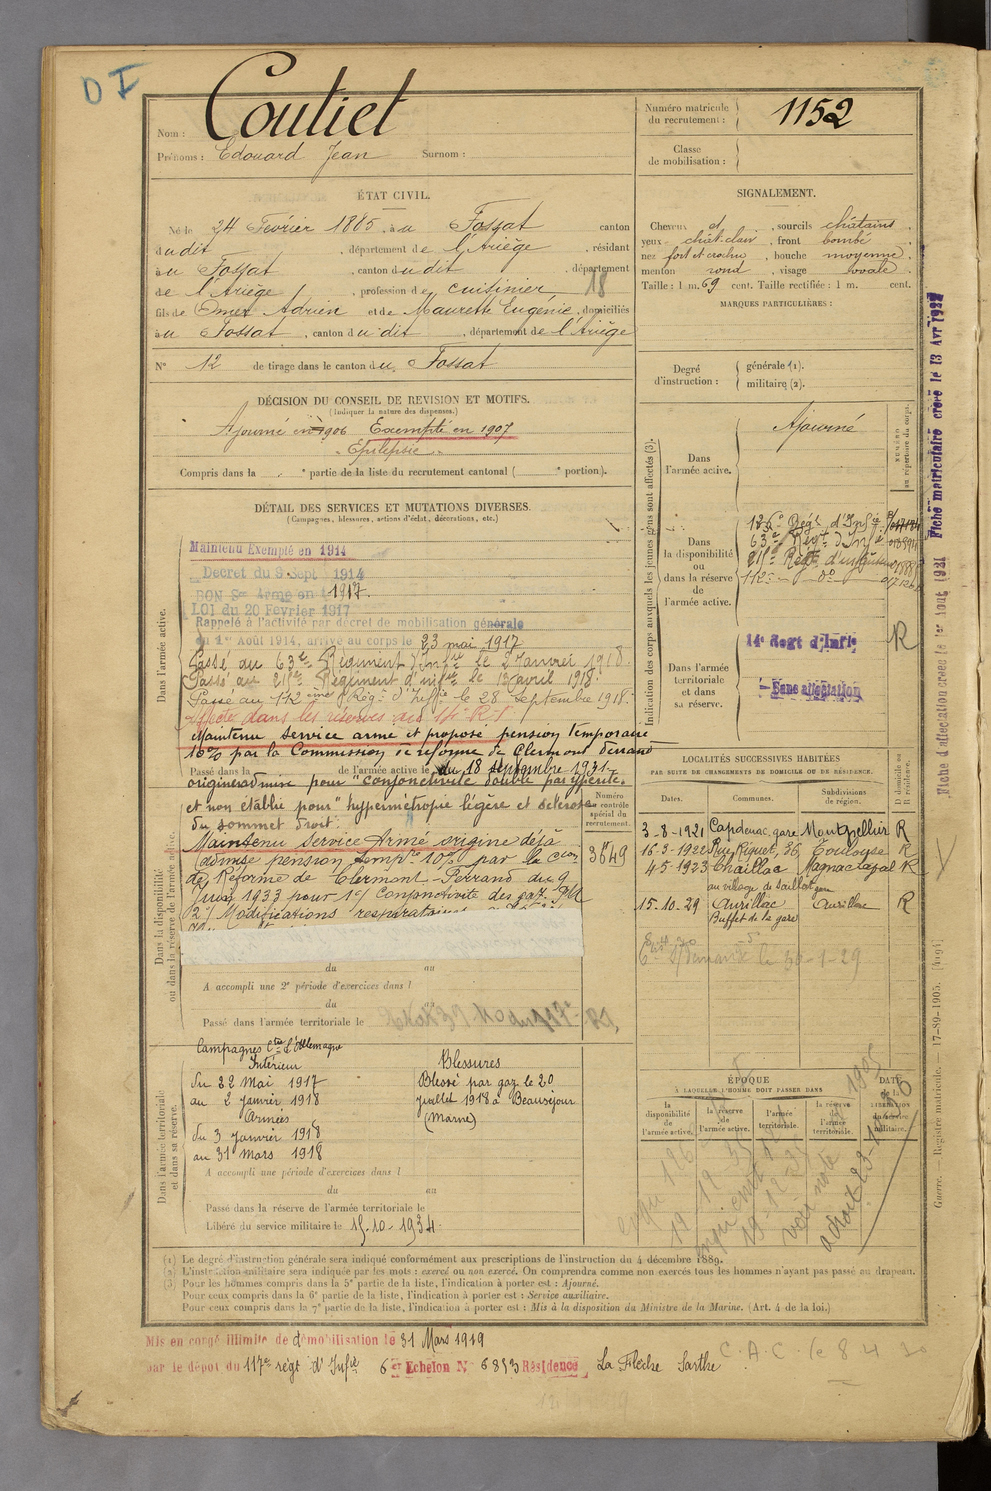 D I
Nom : Coutiel
Prénoms : Edouard Jean Surnom :
Numéro matricule du recrutement : 1152
Classe de mobilisation :
ÉTAT CIVIL.
Né le 24 Février 1885, à u Fossat canton
du dit, département de l'Ariège, résidant
à u Fossat, canton du dit, département
de l'Ariège, profession de cuisinier 18
fils de Omer Adrien et de Maurette Eugénie, domiciliés
à u Fossat, canton du dit, département de l'Ariège
N° 12 de tirage dans le canton du Fossat
SIGNALEMENT.
Cheveux et, sourcils châtains
yeux chât. clair, front bombé
nez fort et crochu, bouche moyenne
menton rond, visage ovale
Taille : 1 m. 69 cent. Taille rectifiée : 1 m. cent.
MARQUES PARTICULIÈRES :
Degré d'instruction : générale (1). militaire (2).
DÉCISION DU CONSEIL DE REVISION ET MOTIFS.
(Indiquer la nature des dispenses.)
Ajourné en 1906 Exempté en 1907
Epilepsie
Compris dans la e partie de la liste du recrutement cantonal ( e portion).
DÉTAIL DES SERVICES ET MUTATIONS DIVERSES.
(Campagnes, blessures, actions d'éclat, décorations, etc.)
Dans l'armée active.
Maintenu Exempté en 1914
Décret du 9 Sept 1914
BON Sce Armé en 1917.
LOI du 20 Février 1917
Rappelé à l'activité par décret de mobilisation générale
du 1er Août 1914, arrivé au corps le 23 mai 1917
Passé au 63e Régiment d'Infie le 2 Janvier 1918.
Passé au 21e Régiment d'infie le 12 avril 1918.
Passé au 112ème Rég. d'Inf le 28 Septembre 1918.
Affecté dans les réserves au
Maintenu service armé et proposé pension temporaire
10% par la Commission de réforme de Clermont Ferrand
Passé dans la de l'armée active le du 18 septembre 1931
origine admise pour "conjonctivite double par ypérite"
et non établie pour "hypermétropie légère et sclérose
du sommet droit.
Maintenu Service Armé origine déjà
admise pension tempre 10% par la Con
de Réforme de Clermont Ferrand du 9
Juin 1933 pour 1°/ Conjonctivite des gaz.
2°/ Modifications respiratoires
Numéro au contrôle spécial du recrutement.
Dans la disponibilité ou dans la réserve de l'armée active.
du au
A accompli une 2e période d'exercices dans l
du au
Passé dans l'armée territoriale le
Indication des corps auxquels les jeunes gens sont affectés (3).
NUMÉRO au répertoire du corps.
Dans l'armée active. Ajourné
Dans la disponibilité ou dans la réserve de l'armée active.
126e Régt d'Infie
63e Régt d'Infie
21e Régt d'infanterie
112e do
Dans l'armée territoriale et dans sa réserve.
14e Regt d'Infie R
Sans affectation
LOCALITÉS SUCCESSIVES HABITÉES
PAR SUITE DE CHANGEMENTS DE DOMICILE OU DE RÉSIDENCE.
Dates. Communes. Subdivisions de région. D domicile ou R résidence.
3-8-1921 Capdenac, gare Montpellier R
16-3-1922 Rue Riquet, 36 Toulouse R
4 5 1923 Chaillac Magnac Laval R
au village de
15.10.29 Aurillac Aurillac R
Buffet de la gare
Campagnes Ctre l'Allemagne
Intérieur
du 22 Mai 1917
au 2 Janvier 1918
Armées
du 3 Janvier 1918
au 31 Mars 1918
Blessures
Blessé par gaz le 20
juillet 1918 à Beauséjour
(Marne)
Dans l'armée territoriale et dans sa réserve.
A accompli une période d'exercices dans l
du au
Passé dans la réserve de l'armée territoriale le
Libéré du service militaire le 15-10-1934
ÉPOQUE
À LAQUELLE L'HOMME DOIT PASSER DANS
la disponibilité de l'armée active.
la réserve de l'armée active.
l'armée territoriale.
la réserve de l'armée territoriale.
DATE de la LIBÉRATION du service militaire.
(1) Le degré d'instruction générale sera indiqué conformément aux prescriptions de l'instruction du 4 décembre 1889.
(2) L'instruction militaire sera indiquée par les mots : exercé ou non exercé. On comprendra comme non exercés tous les hommes n'ayant pas passé au drapeau.
(3) Pour les hommes compris dans la 5e partie de la liste, l'indication à porter est : Ajourné.
Pour ceux compris dans la 6e partie de la liste, l'indication à porter est : Service auxiliaire.
Pour ceux compris dans la 7e partie de la liste, l'indication à porter est : Mis à la disposition du Ministre de la Marine. (Art. 4 de la loi.)
Mis en congé illimité de démobilisation le 31 Mars 1919
par le dépot du 117e régt d'Infie 6er Echelon N° 6853 Résidence La Flèche Sarthe
C.A.C. le 8 4 30
Guerre. — Registre matricule. — 17-89-1905. [4194]
Fiche matriculaire créée le 13 Avr 1922
Fiche d'affectation créée le 1er Aout 1921